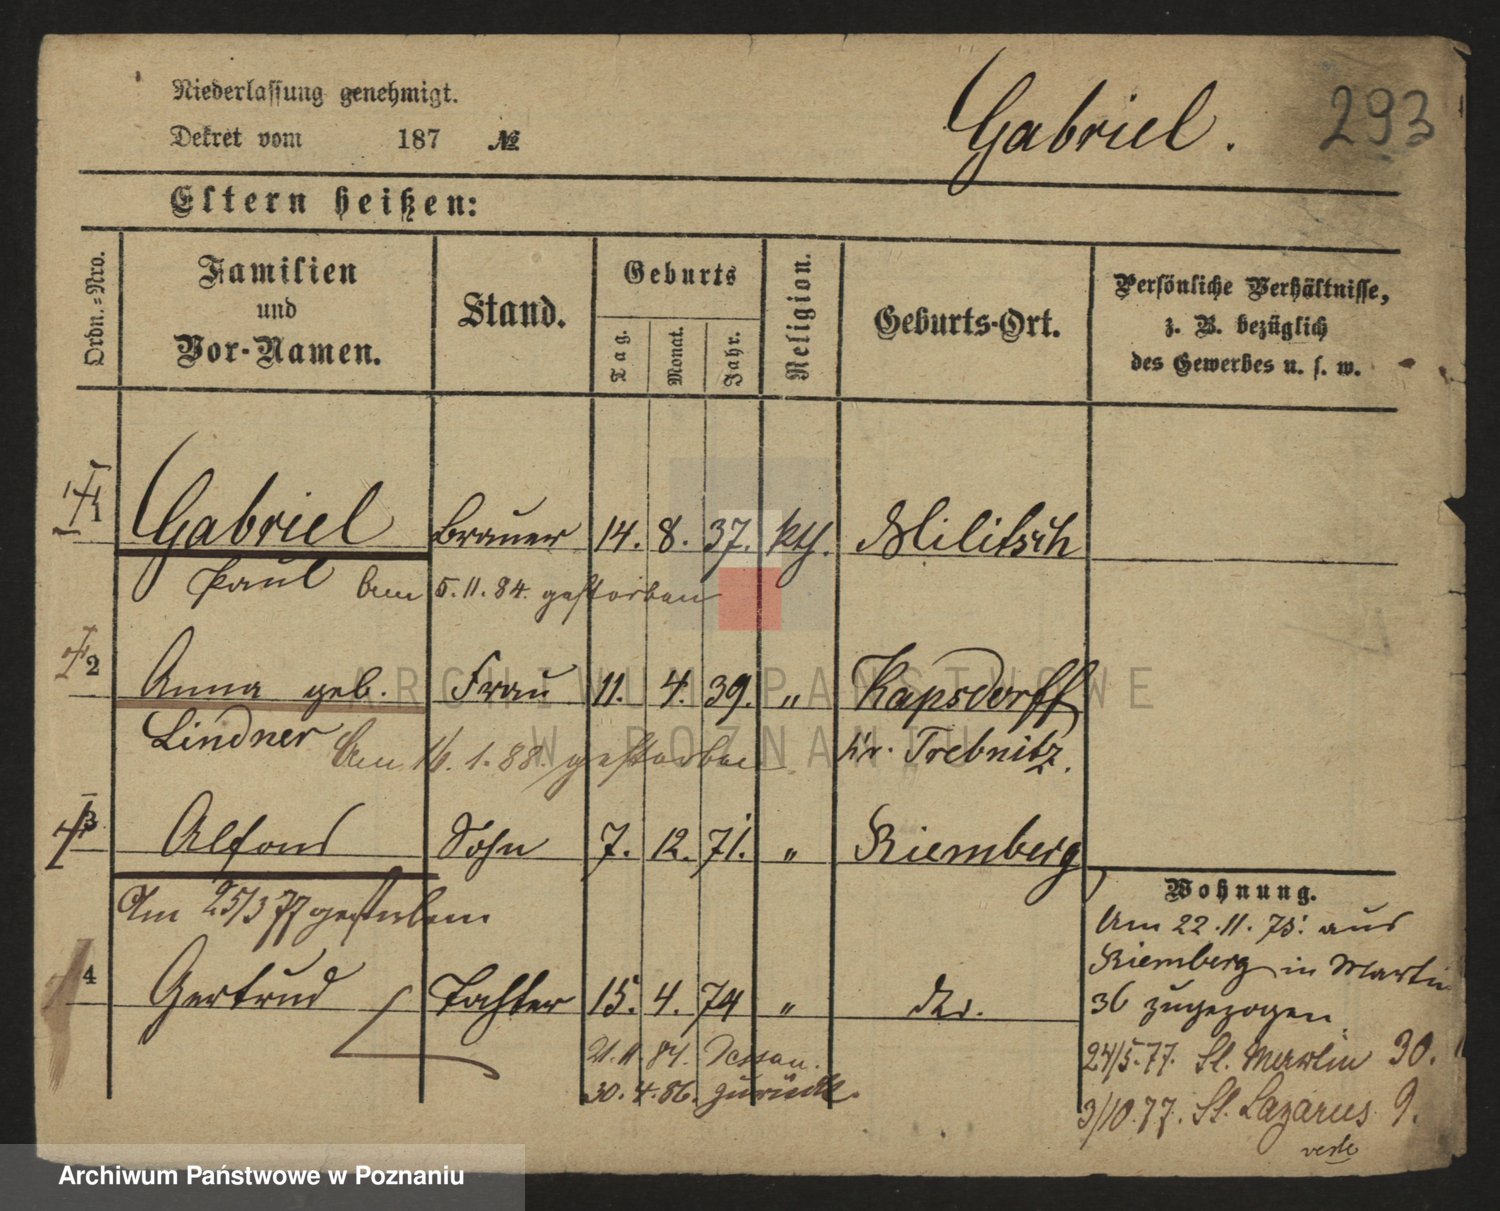 Niederlassung genehmigt.
Gabriel. 293
Dekret vom 187 №
Eltern heißen:
Ordn.-Nro. Familien und Vor-Namen. Stand. Geburts Tag. Monat. Jahr. Religion. Geburts-Ort. Persönliche Verhältnisse, z. B. bezüglich des Gewerbes u. s. w.
1 Gabriel Brauer 14. 8. 37. kth. Militsch
Paul Am 5.11.84. gestorben
2 Anna geb. Frau 11. 4. 39. " Kapsdorff
Lindner Am 16.1.88. gestorben Kr. Trebnitz.
3 Alfons Sohn 7. 12. 71. " Riemberg
Am 25/3 77 gestorben
4 Gertrud Tochter 15. 4. 74 " do.
21.11.84. Dessau.
30.4.86. zurück.
Wohnung.
Am 22.11.75. aus
Riemberg in Martin
36 zugezogen
24/5.77. St. Martin 30.
3/10.77. St. Lazarus 9.
ARCHIWUM PAŃSTWOWE
W POZNANIU
Archiwum Państwowe w Poznaniu